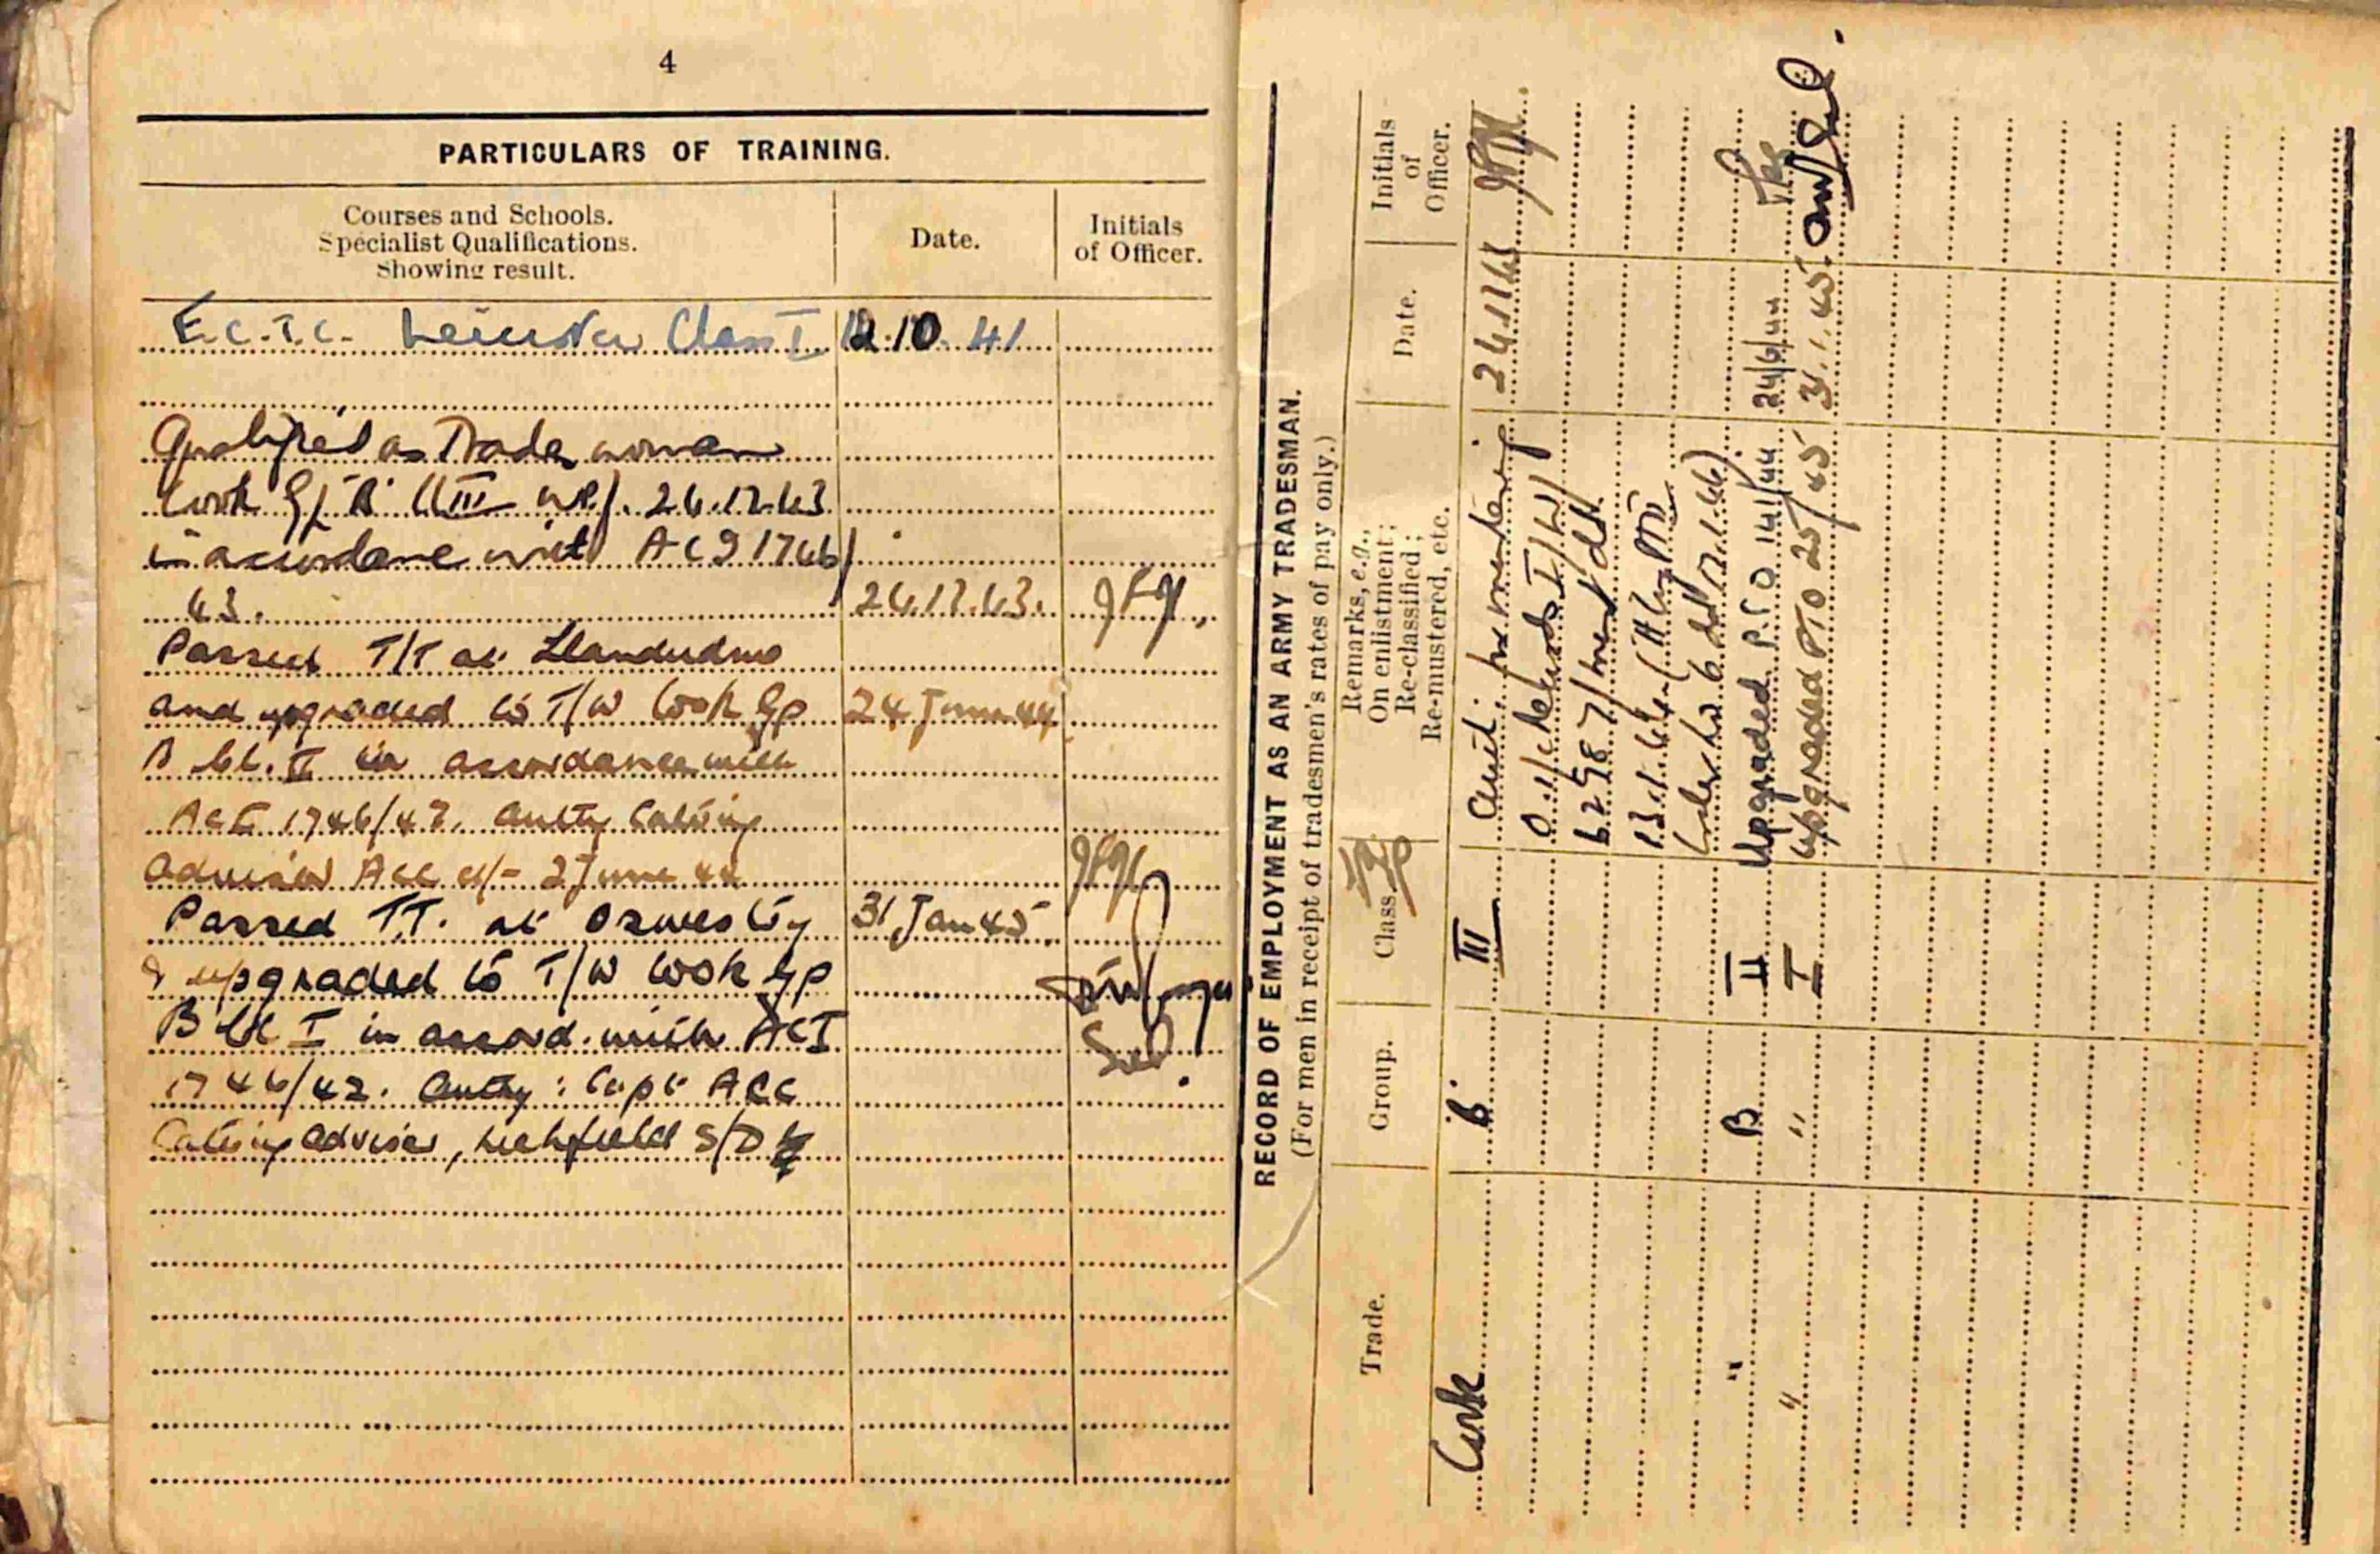 4
PARTICULARS OF TRAINING.
Courses and Schools.
Specialist Qualifications.
Showing result.
Date.
Initials
of Officer.
E.C.T.C. Leicester Class I 12.10.41
Qualified as Tradeswoman
Cook Gp B Cl III wef. 24.12.43
in accordance with ACI 1746/
43. 24.12.43.
Passed T/T at Llandudno
and upgraded to T/W Cook Gp 24 June 44
B Cl. II in accordance with
ACI 1746/43. Authy Catering
Adviser ACC d/- 2 June 44
Passed T.T. at Oswestry 31 Jan 45
& upgraded to T/W Cook Gp
B Cl I in accord. with ACI
1746/43. Authy: Capt ACC
Catering Adviser, Lichfield S/D
RECORD OF EMPLOYMENT AS AN ARMY TRADESMAN.
(For men in receipt of tradesmen's rates of pay only.)
Trade.
Group.
Class.
Remarks, e.g.,
On enlistment;
Re-classified;
Re-mustered, etc.
Date.
Initials
of
Officer.
Cook B. III Auth. for mustering
13.1.44
" B II Upgraded P.T.O 14/44 24/6/44
" " I Upgraded PTO 25/45 31.1.45.